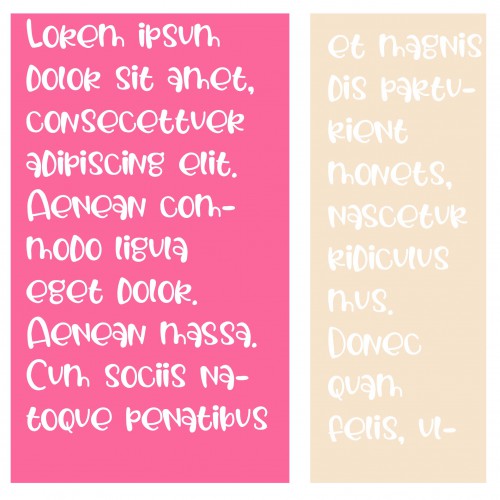 Lorem ipsum
dolor sit amet,
consecettuer
adipiscing elit.
Aenean com-
modo ligula
eget dolor.
Aenean massa.
Cum sociis na-
toque penatibus
et magnis
dis partu-
rient
monets,
nascetur
ridiculus
mus.
Donec
quam
felis, ul-